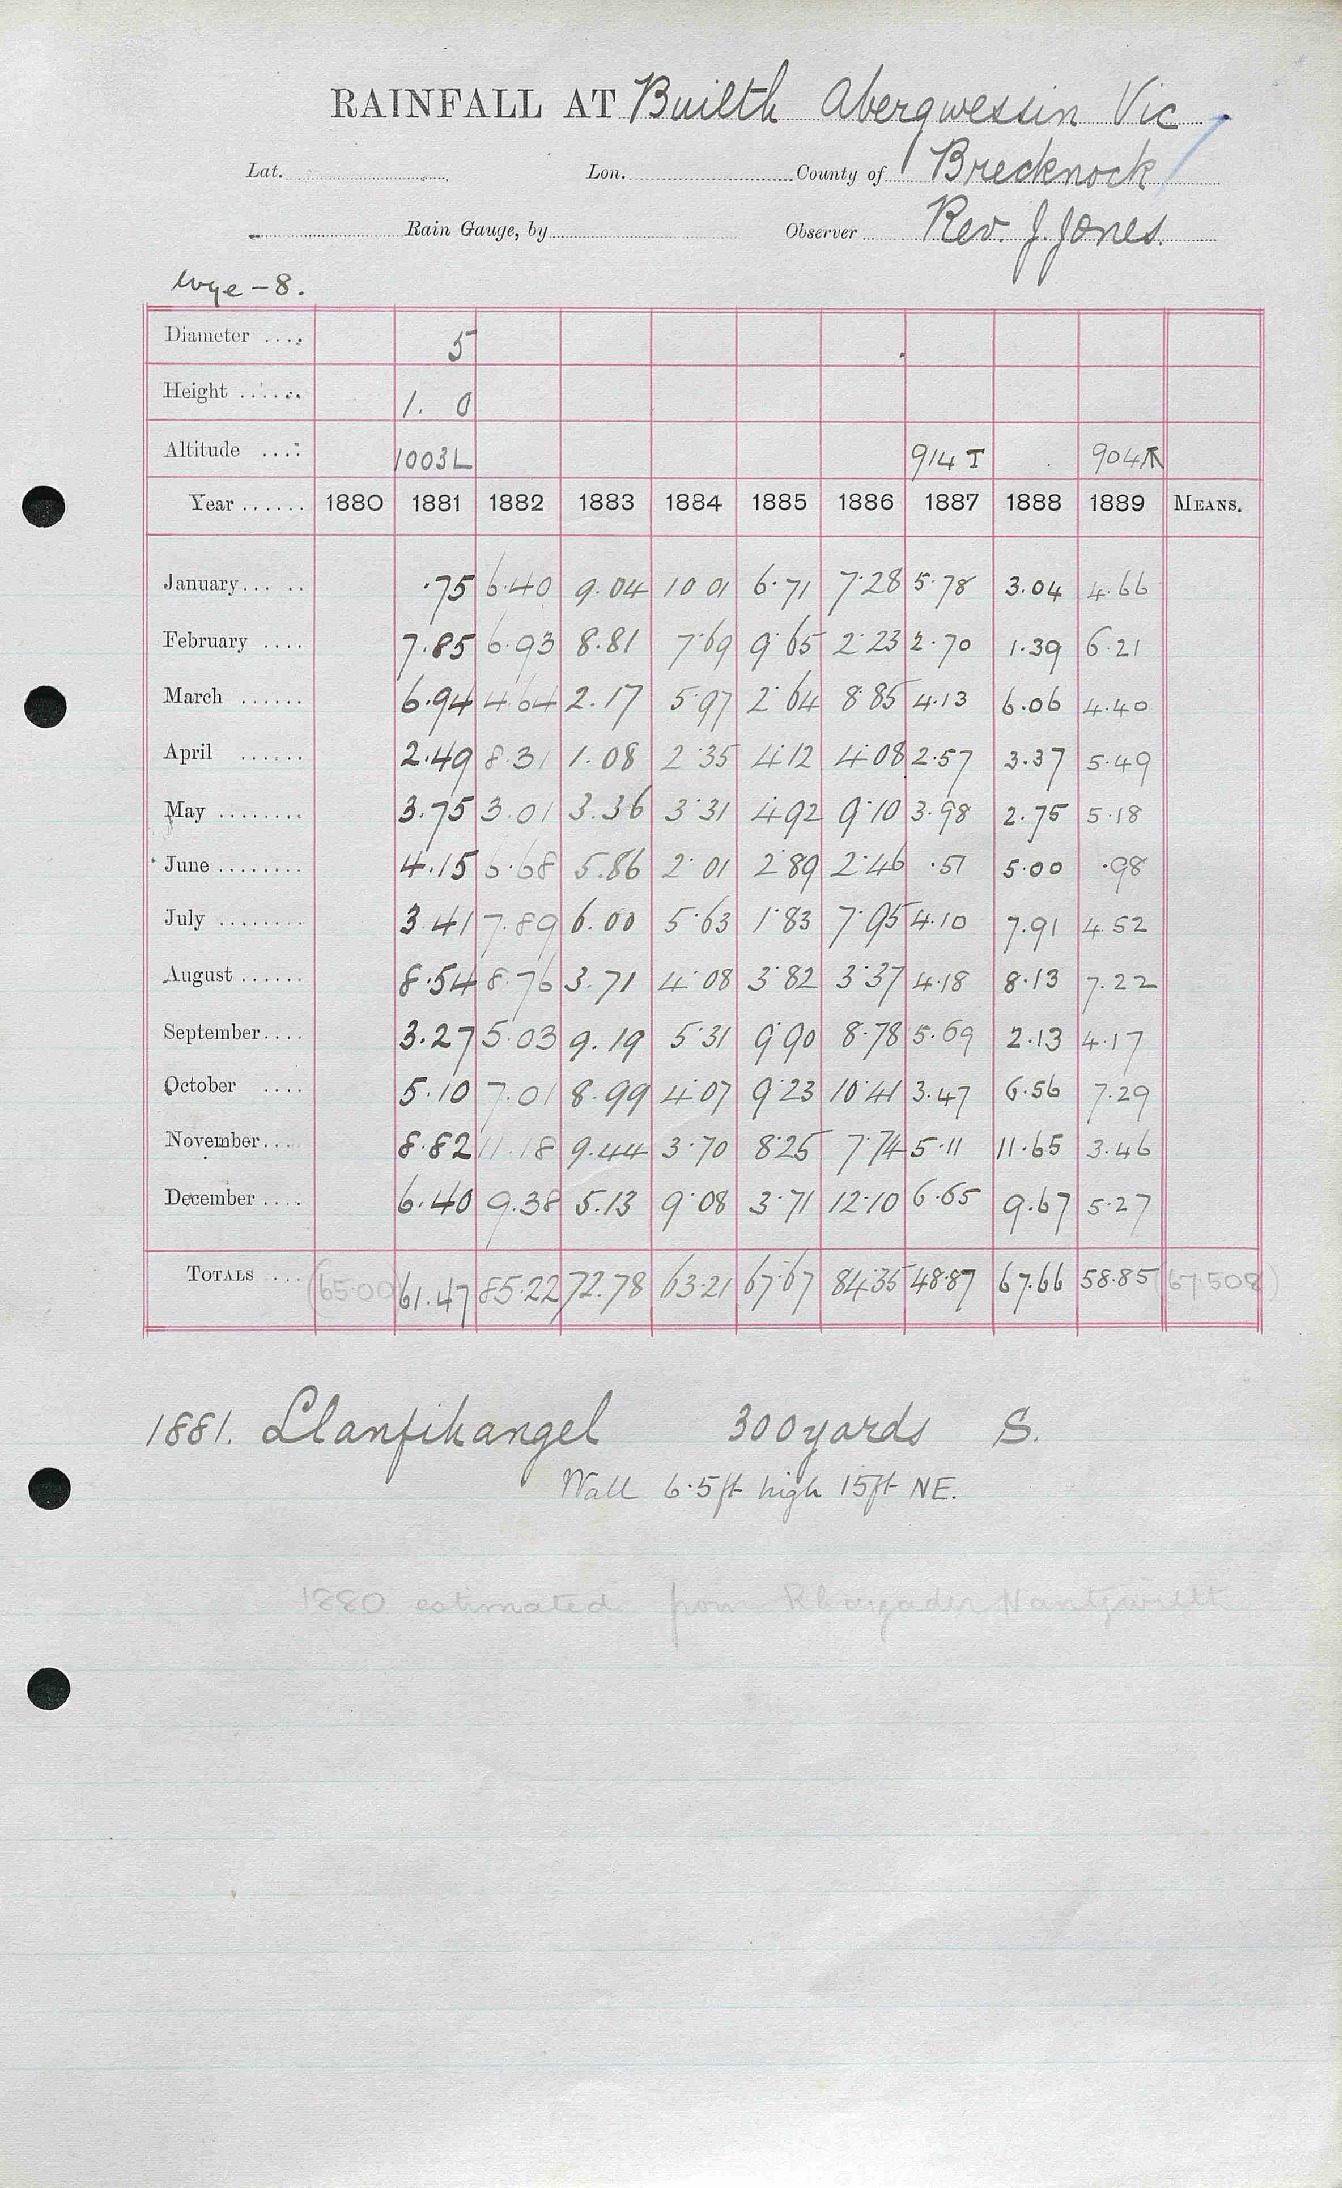 RAINFALL AT Builth Abergwessin Vic
Lat. Lon. County of Brecknock
Rain Gauge, by Observer Rev. J. Jones.
Wye - 8.
Diameter .... 5
Height ...... 1. 0
Altitude .... 1003L 914 T 904
Year ...... 1880 1881 1882 1883 1884 1885 1886 1887 1888 1889 MEANS.
January... .. .75 6.40 9.04 10 01 6.71 7.28 5.78 3.04 4.66
February .... 7.85 6.93 8.81 7.69 9.65 2.23 2.70 1.39 6.21
March ...... 6.94 4.64 2.17 5.97 2.64 8.85 4.13 6.06 4.40
April ...... 2.49 8.31 1.08 2.35 4.12 4.08 2.57 3.37 5.49
May ........ 3.75 3.01 3.36 3.31 4.92 9.10 3.98 2.75 5.18
June ........ 4.15 6.68 5.86 2.01 2.89 2.46 .51 5.00 .98
July ........ 3.41 7.89 6.00 5.63 1.83 7.95 4.10 7.91 4.52
August ...... 8.54 8.76 3.71 4.08 3.82 3.37 4.18 8.13 7.22
September.... 3.27 5.03 9.19 5.31 9.90 8.78 5.69 2.13 4.17
October .... 5.10 7.01 8.99 4.07 9.23 10.41 3.47 6.56 7.29
November.... 8.82 11.18 9.44 3.70 8.25 7.74 5.11 11.65 3.46
December .... 6.40 9.38 5.13 9.08 3.71 12.10 6.65 9.67 5.27
TOTALS ... (65.00) 61.47 85.22 72.78 63.21 67.67 84.35 48.87 67.66 58.85 (67.508)
1881. Llanfihangel 300 yards S.
Wall 6.5ft high 15ft NE.
1880 estimated from Rhayader Nantgwillt